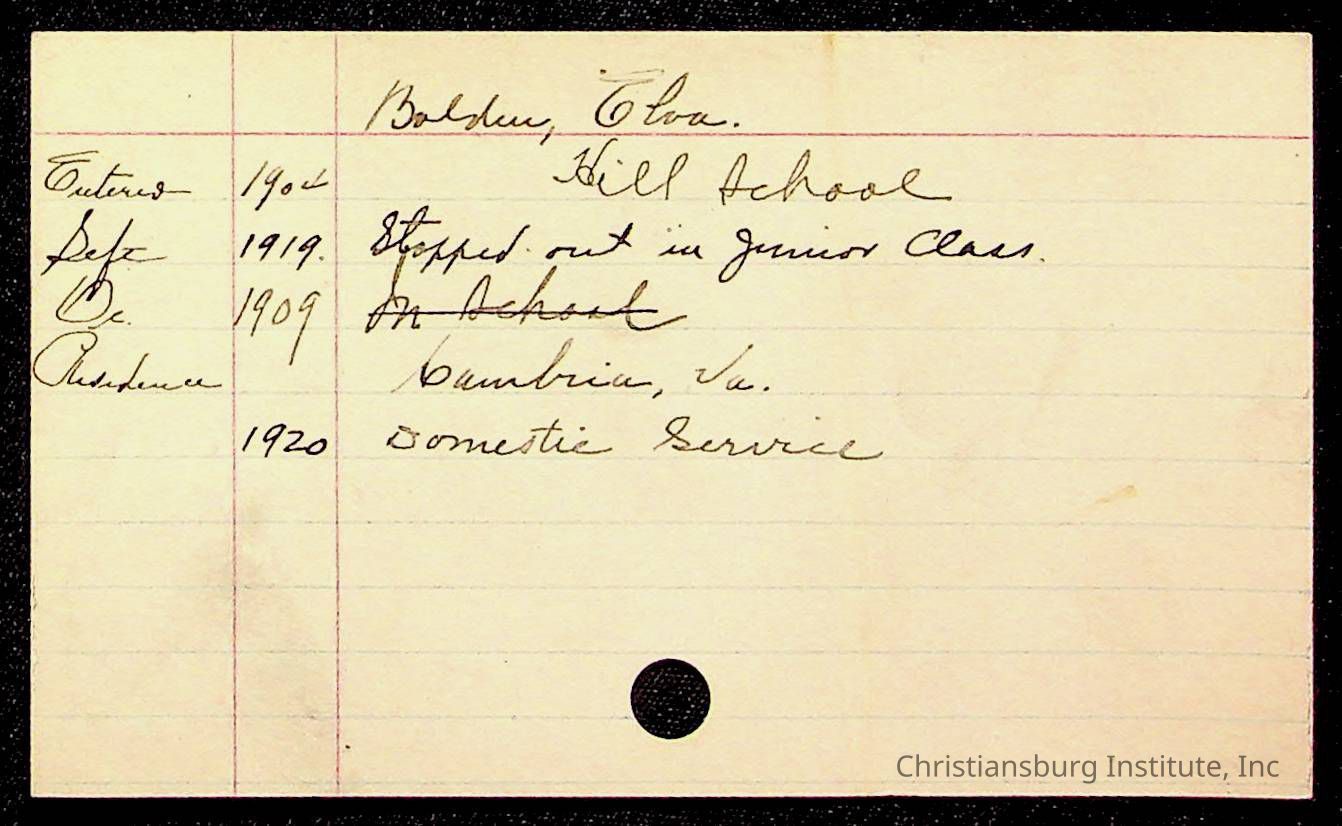 Bolden, Elva.
Entered 1904 Hill School
Left 1919. Stopped out in Junior Class.
Oc. 1909 In School
Residence Cambria, Va.
1920 Domestic Service
Christiansburg Institute, Inc